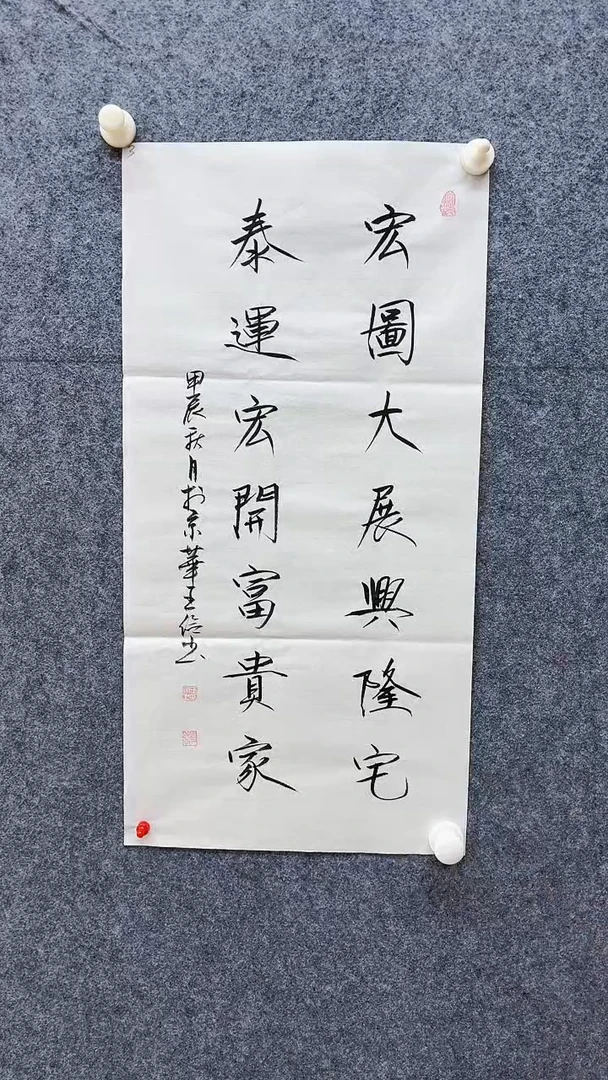 宏圖大展興隆宅
泰運宏開富貴家
甲辰秋月於京華王信书